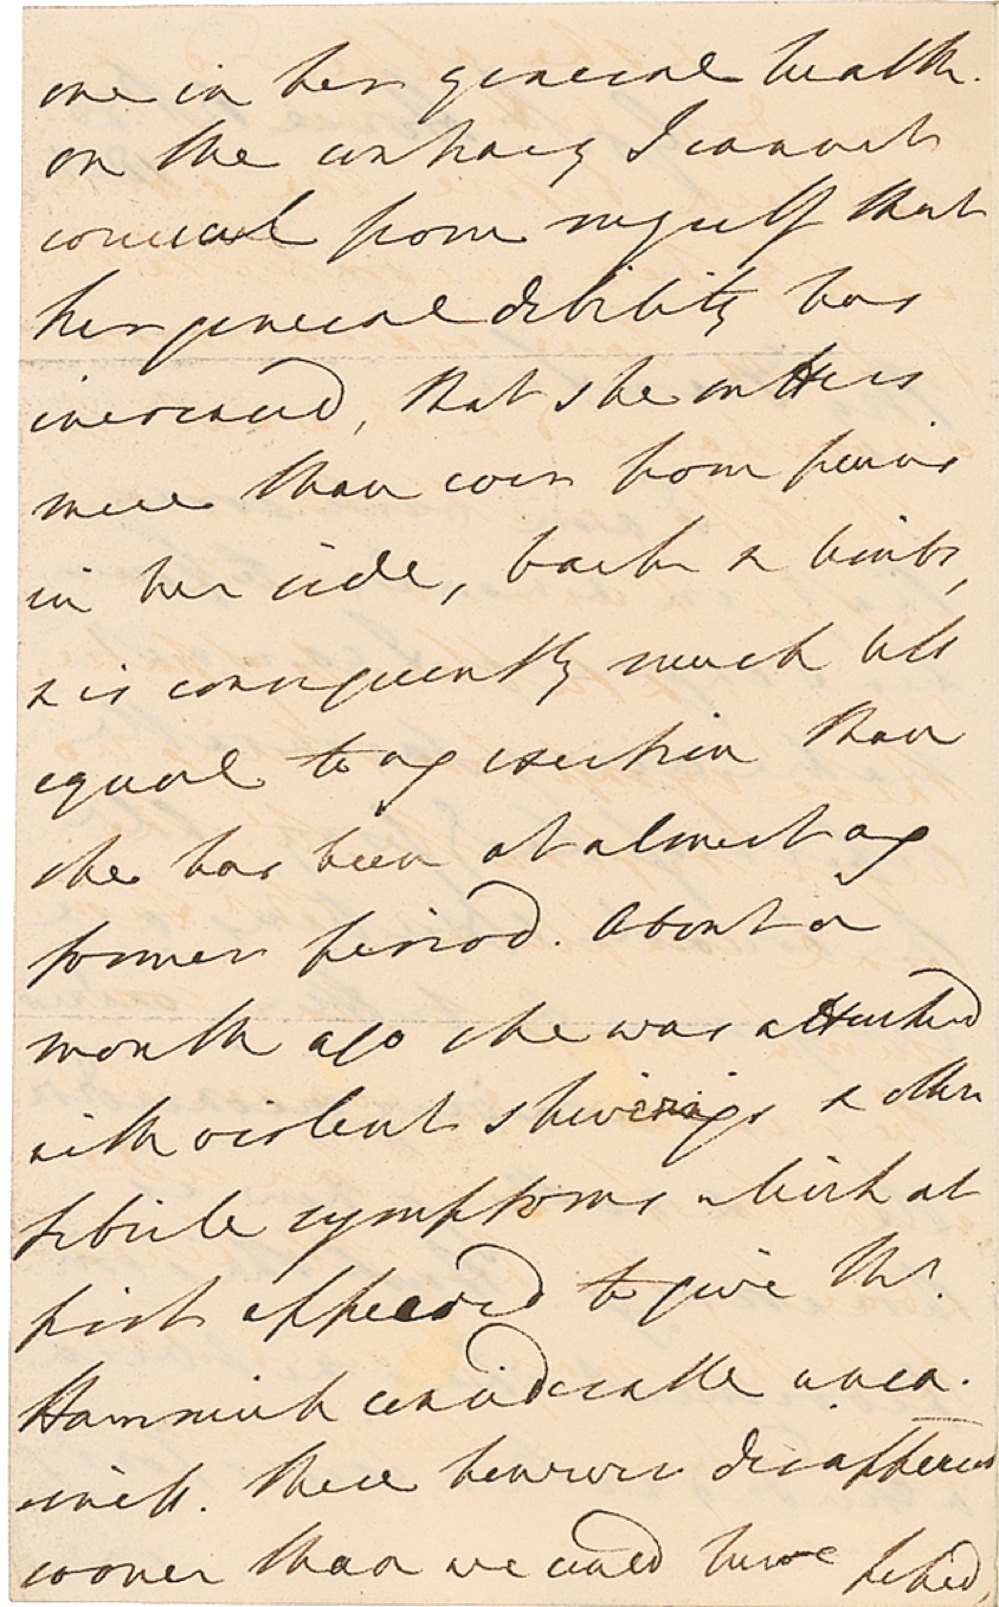 one in her general health.
on the contrary I cannot
conceal from myself that
her general debility has
increased, that she suffers
more than ever from pains
in her side, back & limbs,
& is consequently much less
equal to any exertion than
she has been at almost any
former period. About a
month ago she was attacked
with violent shiverings & other
febrile symptoms which at
first appeared to give Mr.
Hammick considerable unea-
siness. These however disappeared
sooner than we could have hoped,